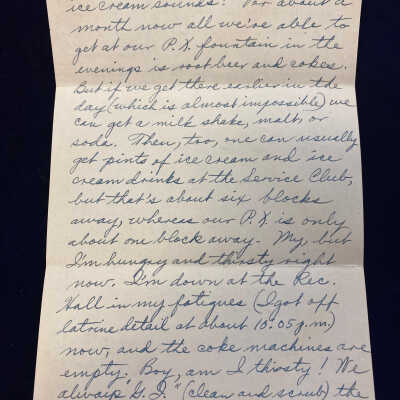 ice cream sounds! For about a
month now all we've able to
get at our P.X. fountain in the
evenings is root beer and cokes.
But if we get there earlier in the
day (which is almost impossible) we
can get a milk shake, malt, or
soda. Then, too, one can usually
get pints of ice cream and ice
cream drinks at the Service Club,
but that's about six blocks
away, whereas our P.X. is only
about one block away. My, but
I'm hungry and thirsty right
now. I'm down at the Rec.
Hall in my fatigues (I got off
latrine detail at about 10:05 p.m.)
now, and the coke machines are
empty. Boy, am I thirsty! We
always "G.I." (clean and scrub) the